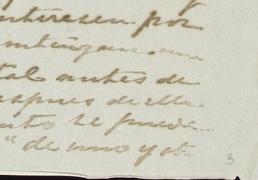 interesen por
mitengan
tal antes de
despues de ella.
nto se puede
" de uno y ot
3